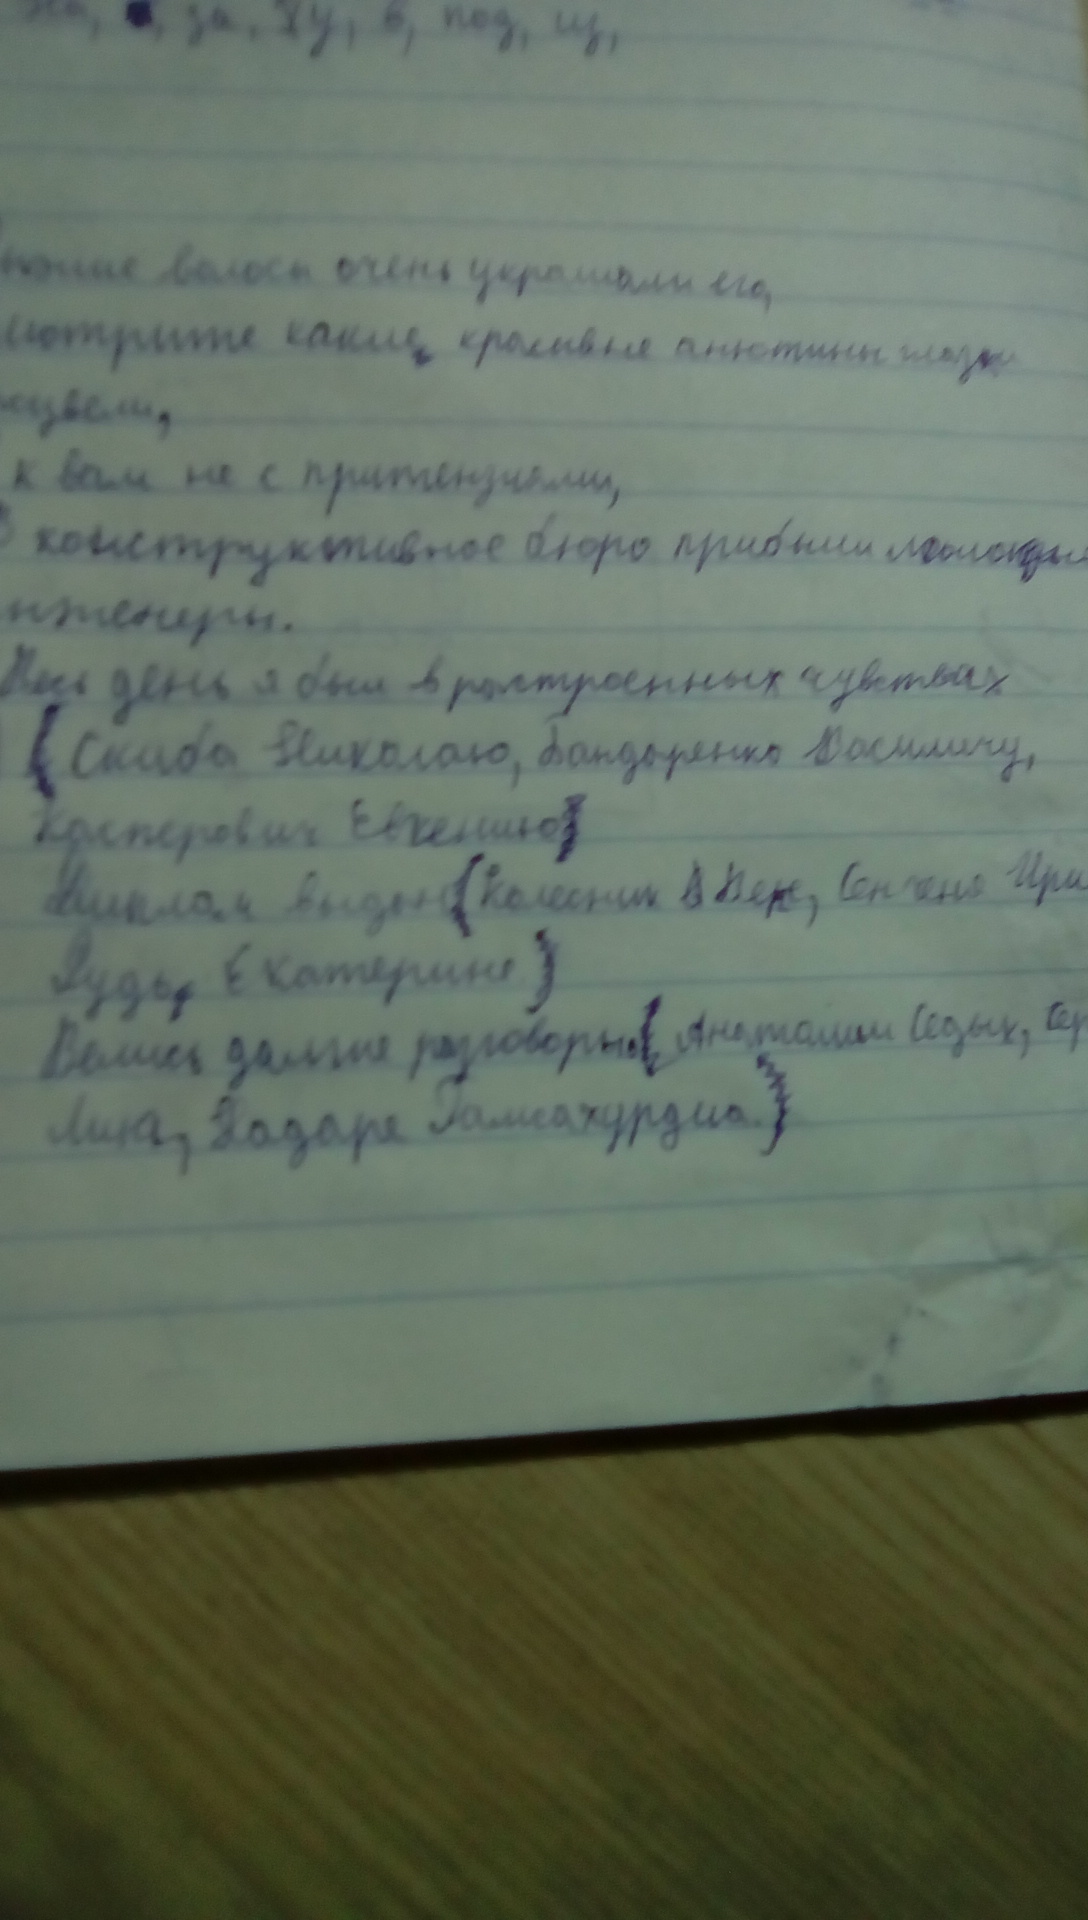 на, за, ху, в, под, из,
волосы очень украшали его,
мотрите какие, красивые анютины глазки
цвели,
к вам не с притензиями,
В конструктивное бюро прибыли молодые
нженеры.
Весь день я был в растроенных чувствах
(Скиба Николаю, Бандаренко Василичу,
Касперович Евгению)
Диплом выдан (Колесник Вере, Сенченя Ири
Рудь, Екатерине)
Велись долгие разговоры (Анатолий Седых, Сер
Лина, Задаре Гамсахурдиа.)